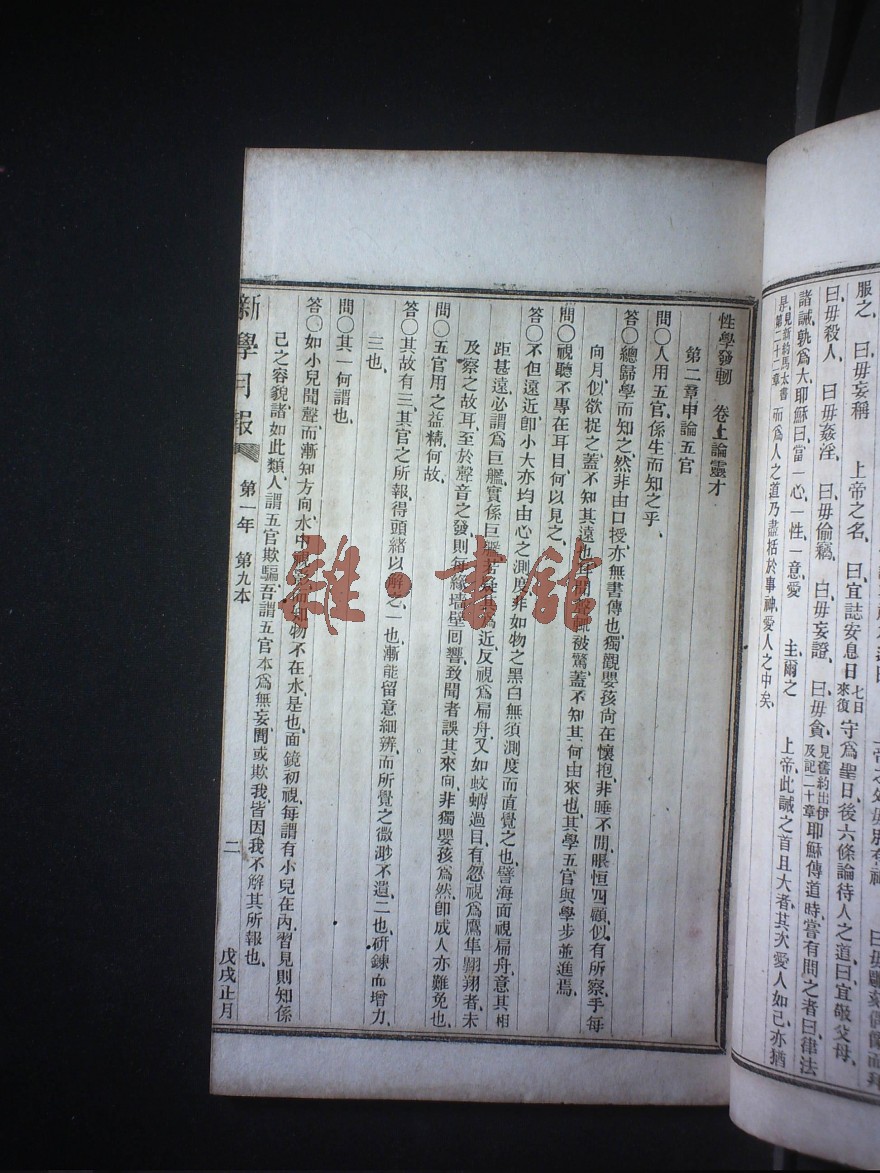 服之、曰毋妄稱 上帝之名、曰宜誌安息日七日來復守爲聖日、後六條論待人之道、曰宜敬父母、
曰毋殺人、曰毋姦淫、曰毋偷竊、曰毋妄證、曰毋貪、見舊約出伊及記二十章耶穌傳道時嘗有問之者曰、律法
諸誡孰爲大、耶穌曰、當一心一性一意愛 主爾之 上帝、此誡之首且大者、其次愛人如己亦猶
是、見新約馬太書第二十二章而爲人之道乃盡括於事神愛人之中矣、
性學發軔 卷上論靈才
第二章申論五官
問〇人用五官、係生而知之乎、
答〇總歸學而知之、然非由口授、亦無書傳也、獨觀嬰孩尙在懷抱、非睡不閒、眼恒四顧、似有所察、手每
向月似欲捉之、蓋不知其遠也、耳聞聲輒被驚、蓋不知其何由來也、其學五官與學步並進焉、
問〇視聽不專在耳目、何以見之、
答〇不但遠近、卽小大亦均由心之測度、非如物之黑白無須測度而直覺之也、譬海面視扁舟、意其相
距甚遠、必謂爲巨艦、實係巨艦、若爲近、反視爲扁舟、又如蚊蚋過目、有忽視爲鷹隼翺翔者、未
及察之故耳、至於聲音之發、則每緣墻壁囘響、致聞者誤其來向、非獨嬰孩爲然、卽成人亦難免也、
問〇五官用之益精、何故、
答〇其故有三、其官之所報、得頭緒以解之、一也、漸能留意細辨、而所覺之微渺不遺、二也、研鍊而增力、
三也、
問〇其一何謂也、
答〇如小兒聞聲而漸知方向、水中視而知物不在水、是也、面鏡初視、每謂有小兒在內、習見則知係
己之容貌、諸如此類、人謂五官欺騙、吾謂五官本爲無妄、間或欺我、皆因我不解其所報也、
新學月報 第一年 第九本 二 戊戌正月
雜·書館